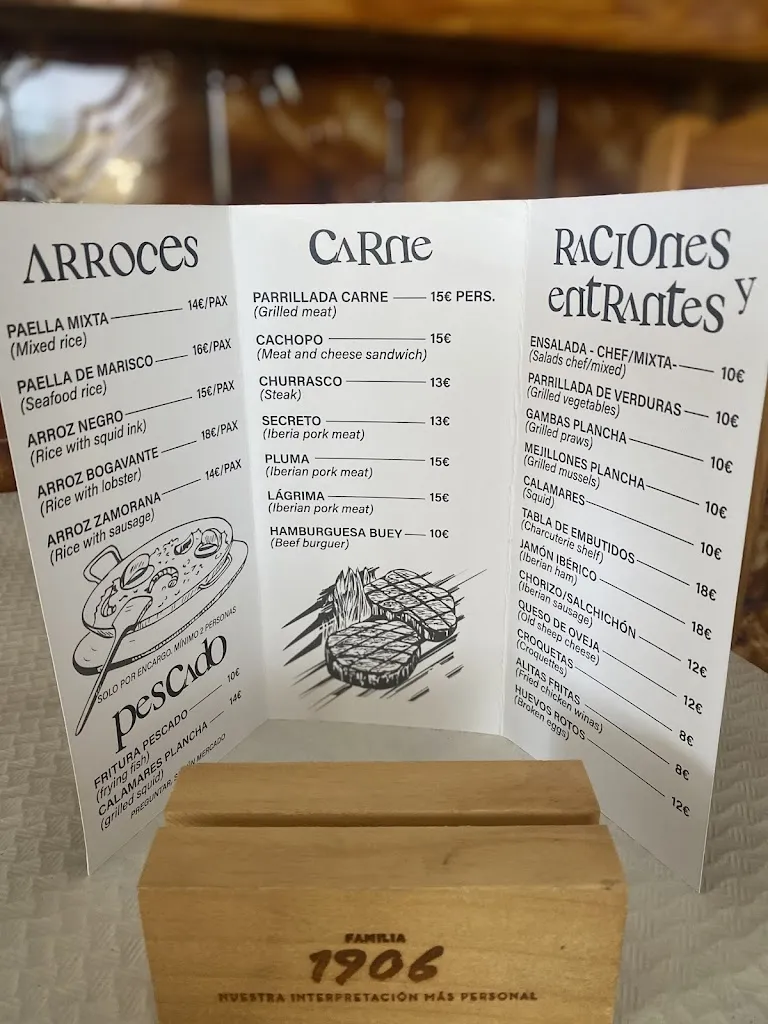 ARROCES
PAELLA MIXTA 14€/PAX
(Mixed rice)
PAELLA DE MARISCO 16€/PAX
(Seafood rice)
ARROZ NEGRO 15€/PAX
(Rice with squid ink)
ARROZ BOGAVANTE 18€/PAX
(Rice with lobster)
ARROZ ZAMORANA 14€/PAX
(Rice with sausage)
SOLO POR ENCARGO. MÍNIMO 2 PERSONAS
PESCADO
FRITURA PESCADO 10€
(frying fish)
CALAMARES PLANCHA 14€
(grilled squid)
PREGUNTAR, SEGÚN MERCADO
CARNE
PARRILLADA CARNE 15€ PERS.
(Grilled meat)
CACHOPO 15€
(Meat and cheese sandwich)
CHURRASCO 13€
(Steak)
SECRETO 13€
(Iberia pork meat)
PLUMA 15€
(Iberian pork meat)
LÁGRIMA 15€
(Iberian pork meat)
HAMBURGUESA BUEY 10€
(Beef burguer)
RACIONES Y
ENTRANTES
ENSALADA - CHEF/MIXTA- 10€
(Salads chef/mixed)
PARRILLADA DE VERDURAS 10€
(Grilled vegetables)
GAMBAS PLANCHA 10€
(Grilled praws)
MEJILLONES PLANCHA 10€
(Grilled mussels)
CALAMARES 10€
(Squid)
TABLA DE EMBUTIDOS 18€
(Charcuterie shelf)
JAMÓN IBÉRICO 18€
(Iberian ham)
CHORIZO/SALCHICHÓN 12€
(Iberian sausage)
QUESO DE OVEJA 12€
(Old sheep cheese)
CROQUETAS 8€
(Croquettes)
ALITAS FRITAS 8€
(Fried chicken winas)
HUEVOS ROTOS 12€
(Broken eggs)
FAMILIA
1906
NUESTRA INTERPRETACIÓN MÁS PERSONAL